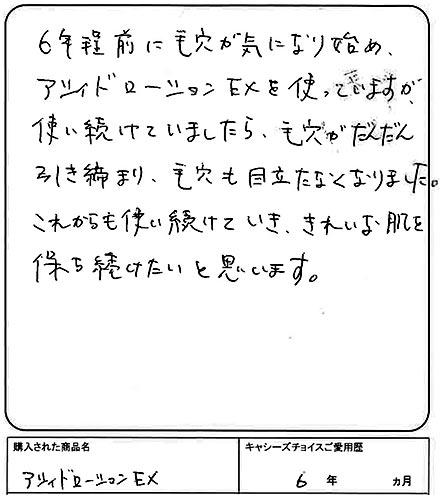 6年程前に毛穴が気になり始め、
アツィドローションEXを使っていますが、
使い続けていましたら、毛穴がだんだん
引き締まり、毛穴も目立たなくなりました。
これからも使い続けていき、きれいな肌を
保ち続けたいと思います。
購入された商品名
キャシーズチョイスご愛用歴
アツィドローションEX
6 年 ヵ月